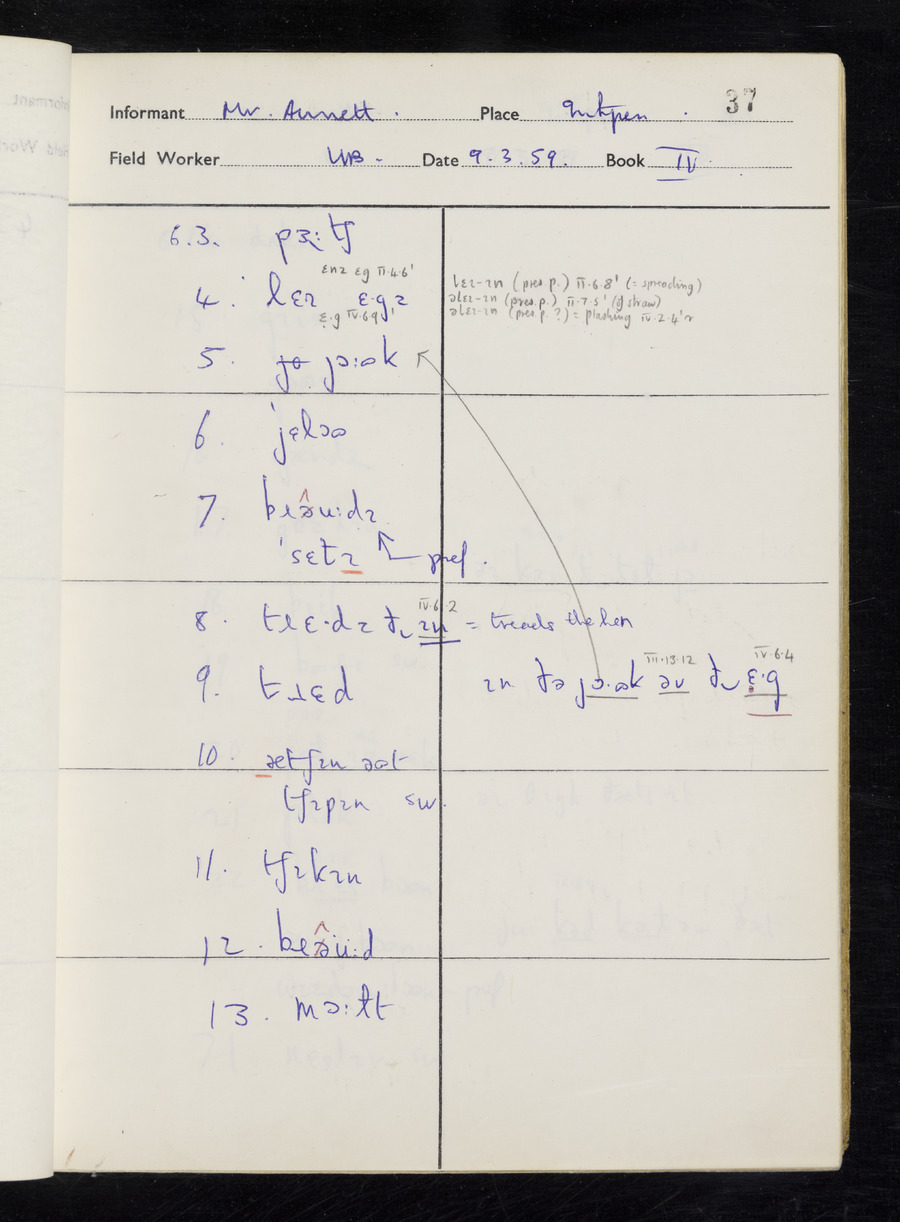 37
Informant Mr. Annett. Place Inkpen.
Field Worker WB. Date 9.3.59. Book IV
6.3. pɜːtʃ
ɛnz eg II.4.6'
4. lɛɪ ɛ·gz
ɛ.g IV.6.9'
lɛɪ-ɪn (pres. p.) II.6.8' (= spreading)
əlɛɪ-ɪn (pres. p.) II.7.5' (of straw)
əlɛɪ-ɪn (pres. p.?) = plashing IV.2.4'r
5. jɔːək
6. jɛlɔə
7. bɹəuːdz
'setɪ pref.
8. tɹɛ·dz ð ɪn = treads the hen
IV.6.2
9. tɹɛd
ɪn ðə jɔ·ək əv ð ɛ·g
III.13.12 IV.6.4
10. ətʃɪn əət
tʃɪpɪn sw.
11. tʃɪkɪn
12. bɹəuːd
13. mɔːɫt